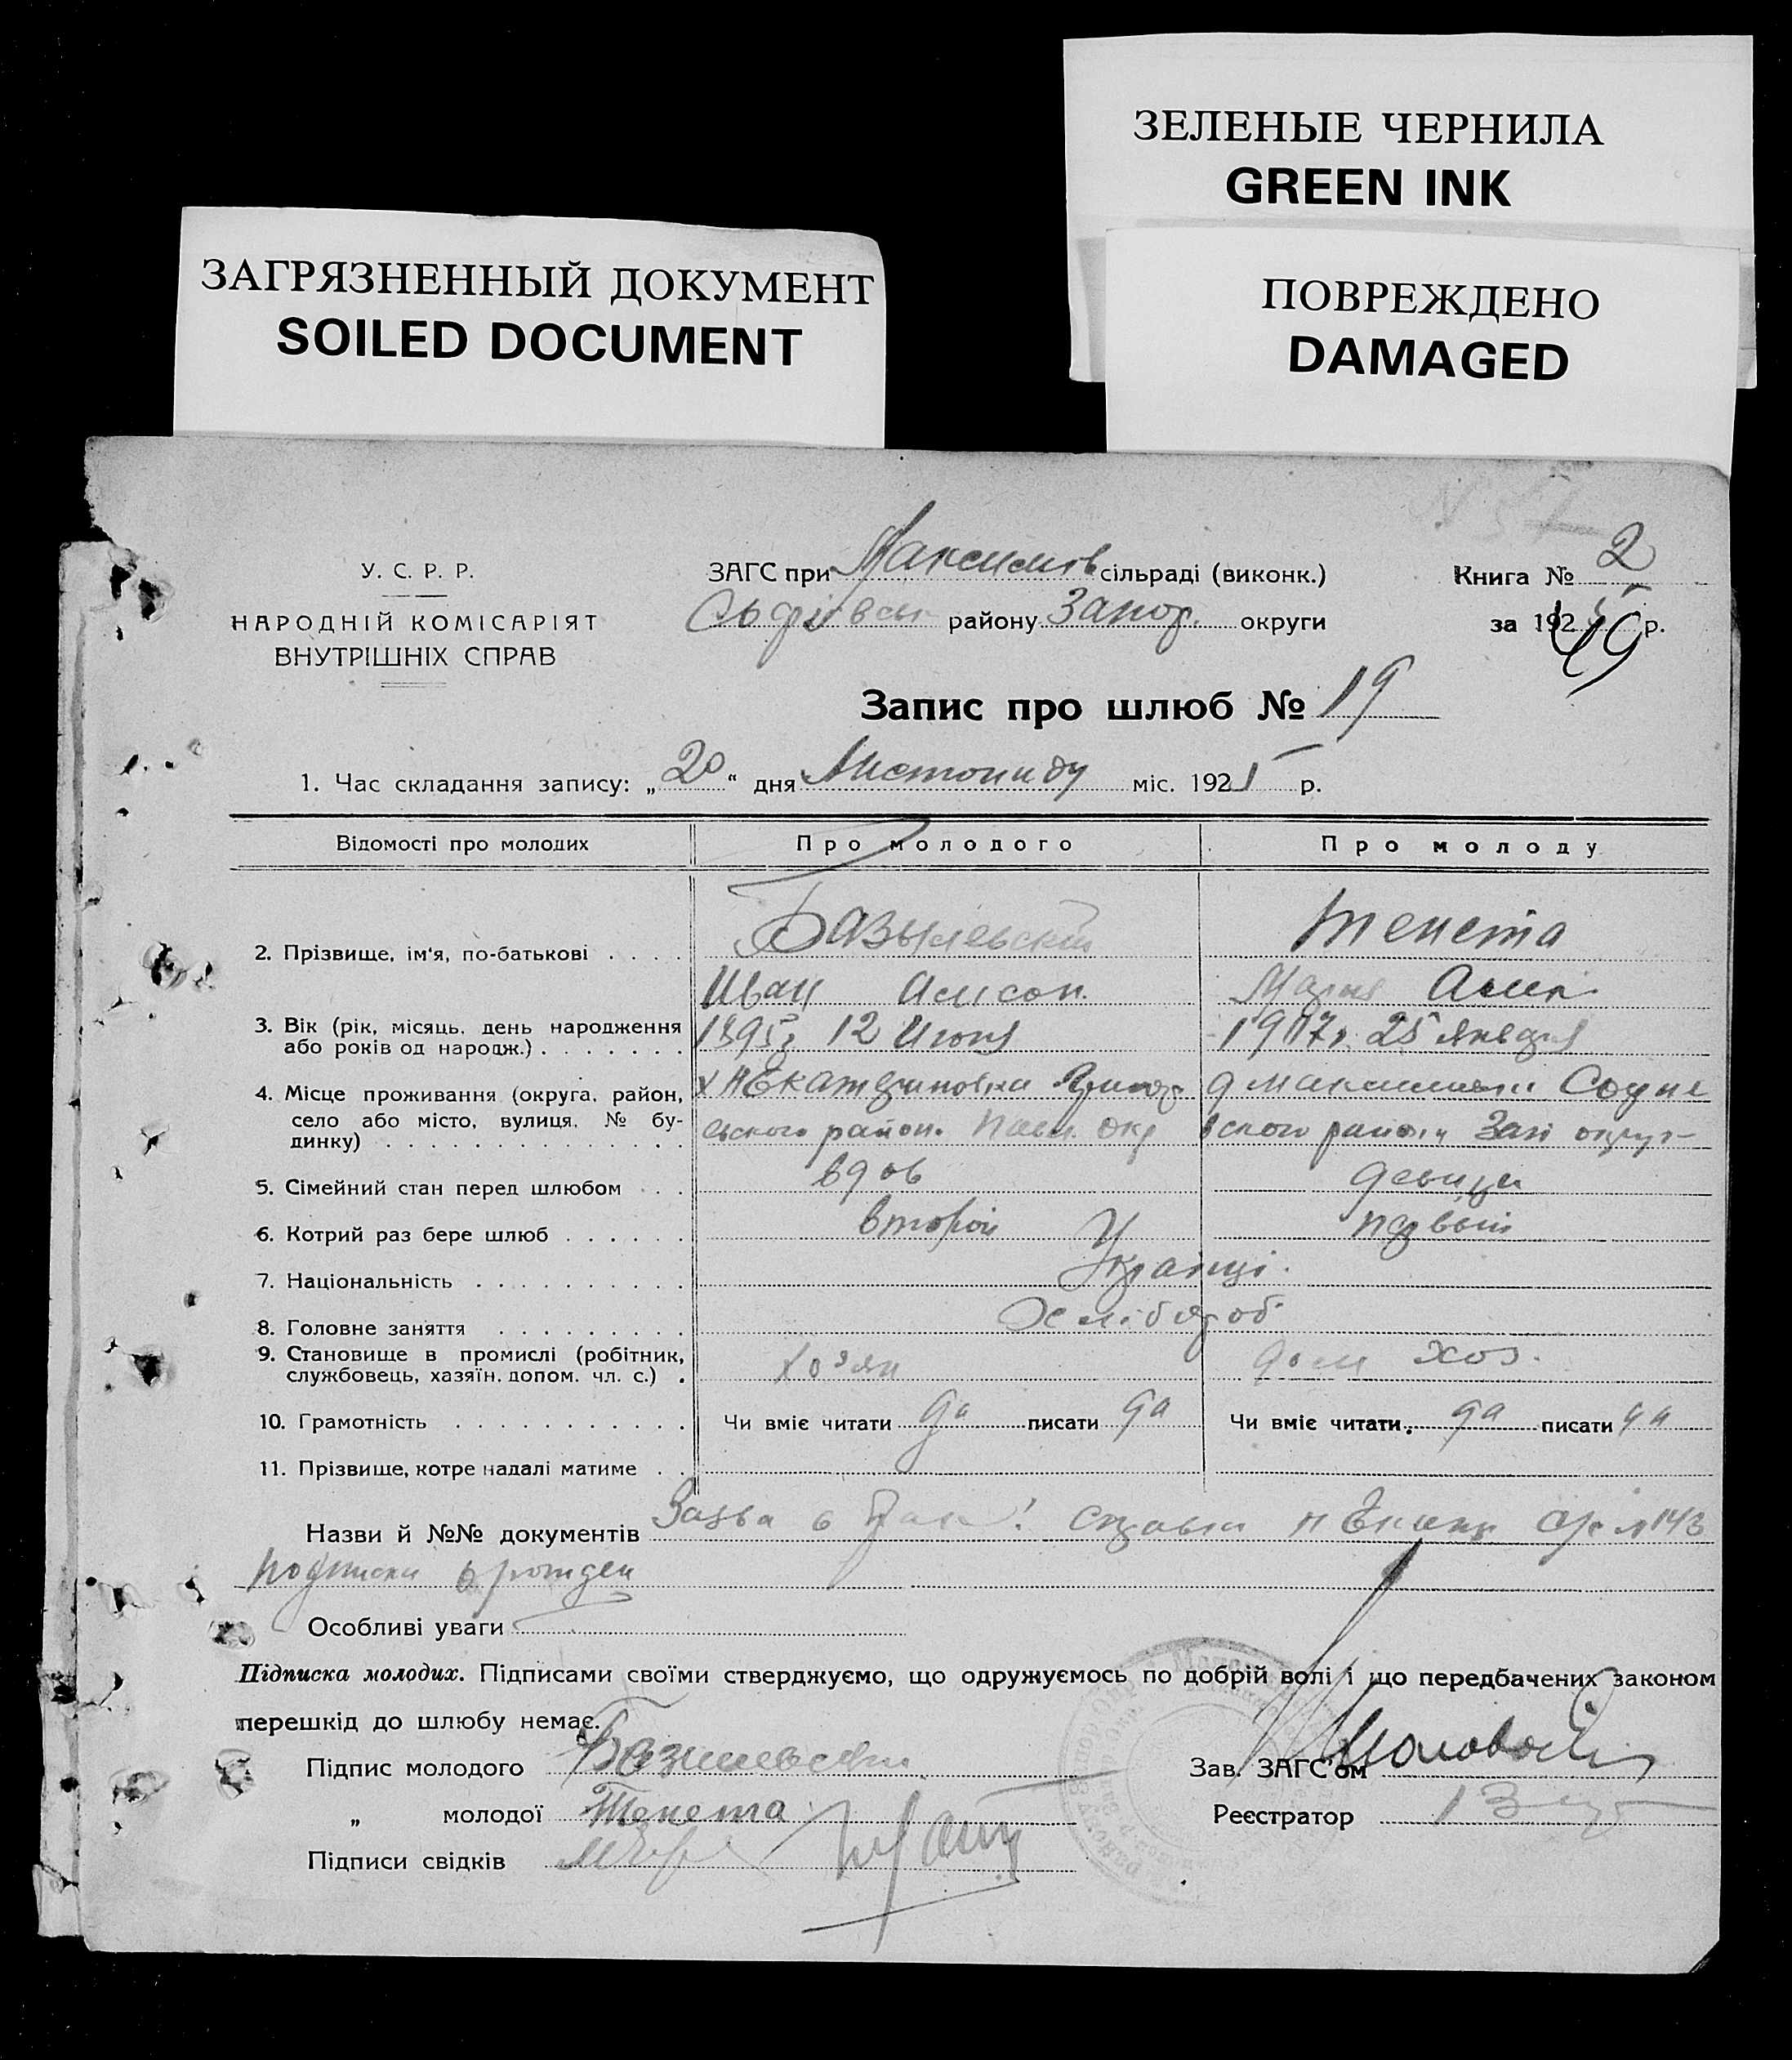 ЗЕЛЕНЫЕ ЧЕРНИЛА
GREEN INK
ЗАГРЯЗНЕННЫЙ ДОКУМЕНТ
SOILED DOCUMENT
ПОВРЕЖДЕНО
DAMAGED
У. С. Р. Р.
НАРОДНІЙ КОМІСАРІЯТ
ВНУТРІШНІХ СПРАВ
ЗАГС при Максимов сільраді (виконк.)
району Запор. округи
Книга № 2
за 1925 р.
49
Запис про шлюб № 19
1. Час складання запису: „20“ дня Листопаду міс. 1925 р.
Відомості про молодих Про молодого Про молоду
2. Прізвище, ім'я, по-батькові . . . . Базылевский Тенета
Иван Самсон. Мария
3. Вік (рік, місяць, день народження або років од народж.) . . . . . . . 1895г 12 Июня 1907г. 25 января
4. Місце проживання (округа, район, село або місто, вулиця, № будинку) . . . . . . . . . . . . . .
Екатериновка
ського район. Павл. окр вского района Зап округ
5. Сімейний стан перед шлюбом . . . вдов девица
6. Котрий раз бере шлюб . . . . . . второй первый
7. Національність . . . . . . . . . . Українці.
8. Головне заняття . . . . . . . . . Хлібороб
9. Становище в промислі (робітник, службовець, хазяїн, допом. чл. с.) . хозяин дом хоз.
10. Грамотність . . . . . . . . . . . Чи вміє читати да писати да Чи вміє читати. да писати да
11. Прізвище, котре надалі матиме . .
Назви й №№ документів Заява о справка № 143
подписки о рожден
Особливі уваги
Підписка молодих. Підписами своїми стверджуємо, що одружуємось по добрій волі і що передбачених законом
перешкід до шлюбу немає.
Підпис молодого Базилевский
Зав. ЗАГС'ом
„ молодої Тенета
Реєстратор
Підписи свідків